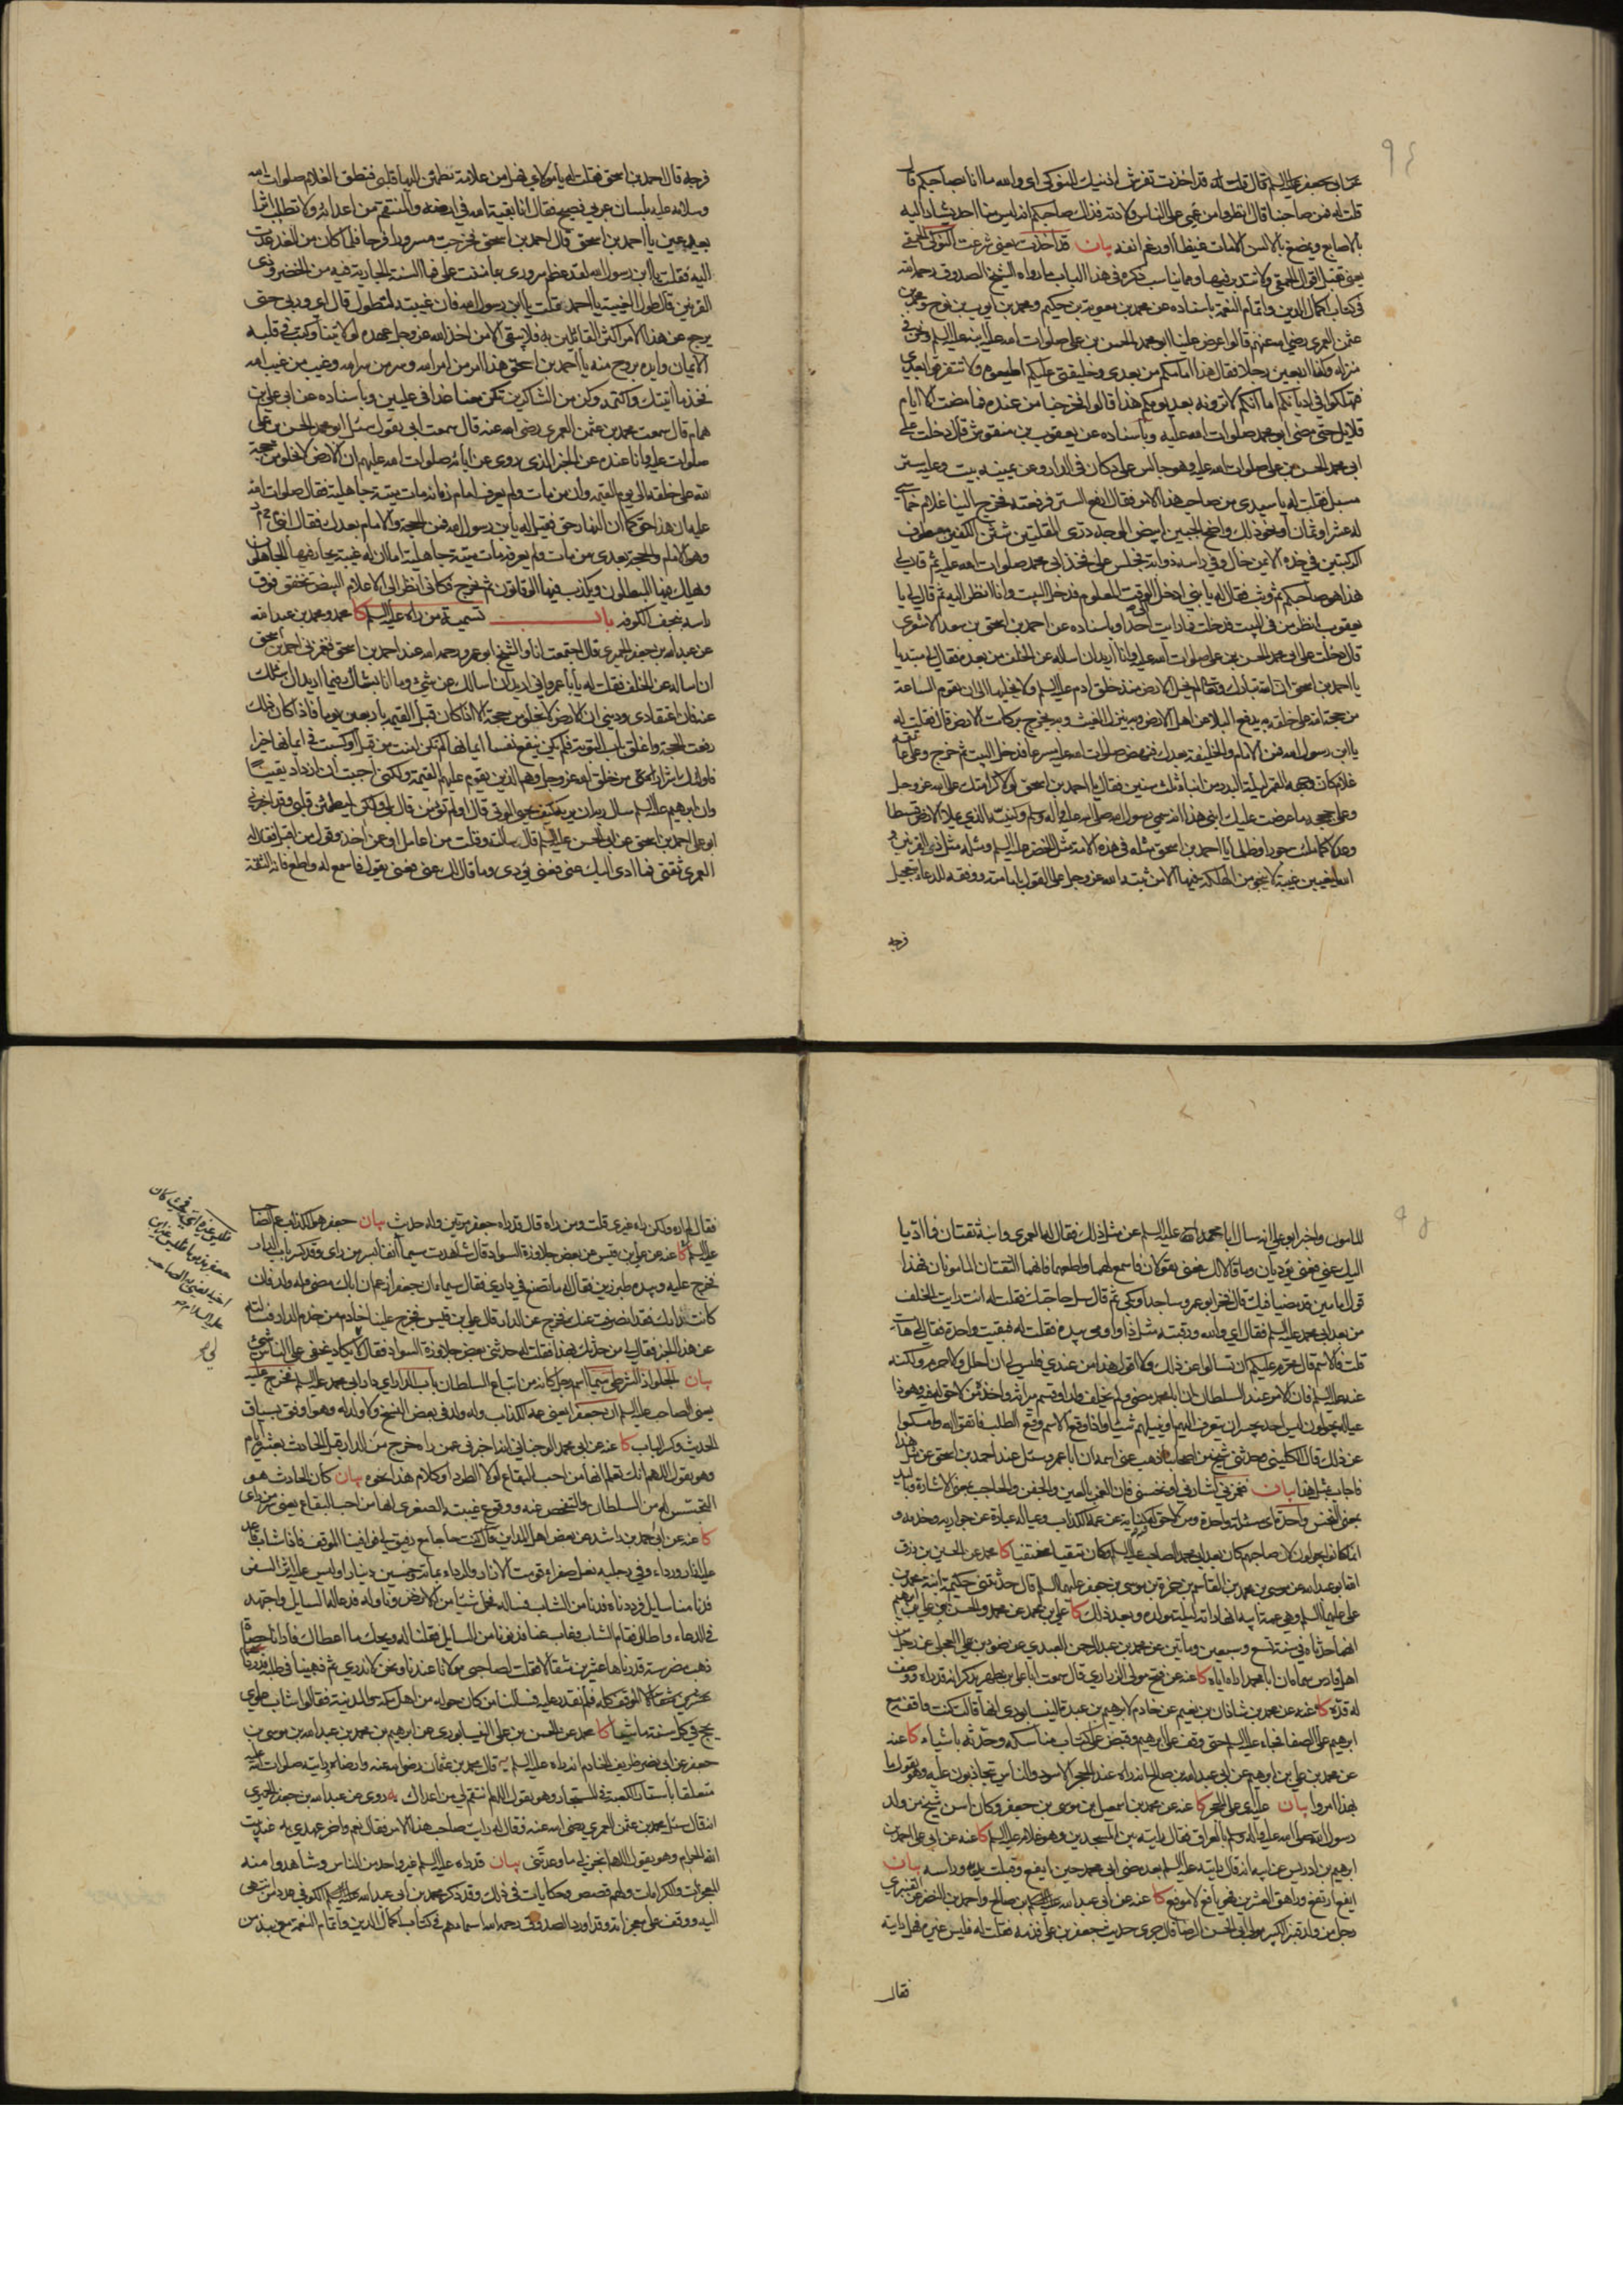 عن ابي جعفر عليه السلم قال قلت له قد اخذت تفرش اذنيك للنوكى اي والله ما انا بصاحبكم قال
قلت له فمن صاحبنا قال انظروا من عمي على الناس ولادته فذلك صاحبكم انه ليس منا احد يشار اليه
بالاصابع ويمضغ بالالسن الا مات غيظا او رغم انفه بيان قد اخذت يعني شرعت النوكى الحمقى
يعني تقبل اقوال الحمقى ومما يناسب ذكره في هذا الباب ما رواه الشيخ الصدوق رحمه الله
في كتاب اكمال الدين واتمام النعمة باسناده عن محمد بن معوية بن حكيم ومحمد بن ايوب بن نوح ومحمد بن
عثمن العمري رضي الله عنهم قالوا عرض علينا ابو محمد الحسن بن علي صلوات الله عليه ابنه عليه السلم ونحن في
منزله وكنا اربعين رجلا فقال هذا امامكم من بعدي وخليفتي عليكم اطيعوه ولا تتفرقوا بعدي
فتهلكوا في اديانكم اما انكم لا ترونه بعد يومكم هذا قالوا فخرجنا من عنده فما مضت الا ايام
قلايل حتى مضى ابو محمد صلوات الله عليه وباسناده عن يعقوب بن منقوش قال دخلت على
ابي محمد الحسن بن علي صلوات الله عليه وهو جالس على دكان في الدار وعن يمينه بيت وعليه ستر
مسبل فقلت له يا سيدي من صاحب هذا الامر فقال ارفع الستر فرفعته فخرج الينا غلام خماسي
له عشر او ثمان او نحو ذلك واضح الجبين ابيض الوجه دري المقلتين شثن الكفين معطوف
الركبتين في خده الايمن خال وفي راسه ذوابة فجلس على فخذ ابي محمد صلوات الله عليه ثم قال لي
هذا هو صاحبكم ثم وثب فقال له يا بني ادخل الى الوقت المعلوم فدخل البيت وانا انظر اليه ثم قال لي يا
يعقوب انظر من في البيت فدخلت فما رايت احدا وباسناده عن احمد بن اسحق بن سعد الاشعري
قال دخلت على ابي محمد الحسن بن علي صلوات الله عليه وانا اريد ان اساله عن الخلف من بعده فقال لي مبتديا
يا احمد بن اسحق ان الله تبارك وتعالى لم يخل الارض منذ خلق ادم عليه السلم ولا يخليها الى ان تقوم الساعة
من حجة لله على خلقه به يدفع البلاء عن اهل الارض وبه ينزل الغيث وبه يخرج بركات الارض قال فقلت له
يا ابن رسول الله فمن الامام والخليفة بعدك فنهض صلوات الله عليه مسرعا فدخل البيت ثم خرج وعلى عاتقه
غلام كان وجهه القمر ليلة البدر من ابناء ثلث سنين فقال يا احمد بن اسحق لولا كرامتك على الله عز وجل
وعلى حججه ما عرضت عليك ابني هذا انه سمي رسول الله صلى الله عليه واله وسلم وكنيه الذي يملا الارض قسطا
وعدلا كما ملئت جورا وظلما يا احمد بن اسحق مثله في هذه الامة مثل الخضر عليه السلم ومثله مثل ذي القرنين
والله ليغيبن غيبة لا ينجو من الهلكة فيها الا من ثبته الله عز وجل على القول بامامته ووفقه للدعاء بتعجيل
فرجه
فرجه قال احمد بن اسحق فقلت له يا مولاي فهل من علامة تطمئن اليها قلبي فنطق الغلام صلوات الله
وسلامه عليه بلسان عربي فصيح فقال انا بقية الله في ارضه والمنتقم من اعدائه ولا تطلب اثرا
بعد عين يا احمد بن اسحق قال احمد بن اسحق فخرجت مسرورا فرحا فلما كان من الغد عدت
اليه فقلت يا ابن رسول الله لقد عظم سروري بما مننت علي فما السنة الجارية فيه من الخضر وذي
القرنين قال طول الغيبة يا احمد فقلت يا ابن رسول الله فان غيبته لتطول قال اي وربي حتى
يرجع عن هذا الامر اكثر القائلين به فلا يبقى الا من اخذ الله عز وجل عهده لولايتنا وكتب في قلبه
الايمان وايده بروح منه يا احمد بن اسحق هذا امر من امر الله وسر من سر الله وغيب من غيب الله
فخذ ما اتيتك واكتمه وكن من الشاكرين تكن معنا غدا في عليين وباسناده عن ابي علي بن
همام قال سمعت محمد بن عثمن العمري رضي الله عنه قال سمعت ابي يقول سئل ابو محمد الحسن بن علي
صلوات الله عليه وانا عنده عن الخبر الذي روي عن ابائه صلوات الله عليهم ان الارض لا تخلو من حجة
لله على خلقه الى يوم القيمة وان من مات ولم يعرف امام زمانه مات ميتة جاهلية فقال صلوات الله
عليه ان هذا حق كما ان النهار حق فقيل له يا بن رسول الله فمن الحجة والامام بعدك فقال ابني محمد
وهو الامام والحجة بعدي من مات ولم يعرفه مات ميتة جاهلية اما ان له غيبة يحار فيها الجاهلون
ويهلك فيها المبطلون ويكذب فيها الوقاتون ثم يخرج فكاني انظر الى الاعلام البيض تخفق فوق
راسه بنجف الكوفة باب تسمية من راه عليه السلم كا محمد ومحمد بن عبد الله
عن عبد الله بن جعفر الحميري قال اجتمعت انا والشيخ ابو عمرو رحمه الله عند احمد بن اسحق فغمزني احمد بن اسحق
ان اساله عن الخلف فقلت له يا با عمرو اني اريد ان اسالك عن شيء وما انا بشاك فيما اريد ان اسئلك
عنه فان اعتقادي وديني ان الارض لا تخلو من حجة الا اذا كان قبل القيمة باربعين يوما فاذا كان ذلك
رفعت الحجة واغلق باب التوبة فلم يكن ينفع نفسا ايمانها لم تكن امنت من قبل او كسبت في ايمانها خيرا
فاولئك اشرار من خلق الله عز وجل وهم الذين يقوم عليهم القيمة ولكني احببت ان ازداد يقينا
وان ابرهيم عليه السلم سال ربه ان يريه كيف يحيي الموتى قال اولم تؤمن قال بلى ولكن ليطمئن قلبي وقد اخبرني
ابو علي احمد بن اسحق عن ابي الحسن عليه السلم قال سالته وقلت من اعامل او عن اخذ وقول من اقبل فقال له
العمري ثقتي فما ادى اليك عني فعني يؤدي وما قال لك عني فعني يقول فاسمع له واطع فانه الثقة
المامون واخبرني ابو علي انه سال ابا محمد عليه السلم عن مثل ذلك فقال له العمري وابنه ثقتان فما اديا
اليك عني فعني يؤديان وما قالا لك فعني يقولان فاسمع لهما واطعهما فانهما الثقتان المامونان فهذا
قول امامين قد مضيا فيك قال فخر ابو عمرو ساجدا وبكى ثم قال سل حاجتك فقلت له انت رايت الخلف
من بعد ابي محمد عليه السلم فقال اي والله ورقبته مثل ذا واومى بيده فقلت له فبقيت واحدة فقال لي هات
قلت فالاسم قال محرم عليكم ان تسالوا عن ذلك ولا اقول هذا من عندي فليس لي ان احلل ولا احرم ولكنه
عنه عليه السلم فان الامر عند السلطان ان ابا محمد مضى ولم يخلف ولدا وقسم ميراثه واخذه من لا حق له فيه وهو ذا
عياله يجولون ليس احد يجسر ان يتعرف اليهم او ينيلهم شيئا واذا وقع الاسم وقع الطلب فاتقوا الله وامسكوا
عن ذلك قال الكليني وحدثني شيخ من اصحابنا ذهب عني اسمه ان ابا عمرو سئل عند احمد بن اسحق عن مثل هذا
فاجاب بمثل هذا بيان فغمزني اشار الي او نخسني فان الغمز بالعين والجفن والحاجب بمعنى الاشارة وباليد
بمعنى النخس واحدة اي مسئلة واحدة ومن لا حق له كناية عن عمه الكذاب وعياله عبارة عن جواريه وخدمه و
كا محمد عن الحسين بن رزق
الله ابو عبد الله عن موسى بن محمد بن القاسم بن حمزة بن موسى بن جعفر عليهما السلم قال حدثتني حكيمة ابنة محمد بن
علي عليهما السلم وهي عمة ابيه انها راته ليلة مولده وبعد ذلك كا علي بن محمد عن محمد والحسن ابني علي بن ابرهيم
انهما حدثاه في سنة تسع وسبعين ومايتين عن محمد بن عبد الرحمن العبدي عن ضوء بن علي العجلي عن رجل من
اهل فارس سماه ان ابا محمد اراه اياه كا عنه عن فتح مولى الزراري قال سمعت ابا علي بن مطهر يذكر انه قد راه ووصف
له قده كا عنه عن محمد بن شاذان بن نعيم عن خادم لابرهيم بن عبدة النيسابوري انها قالت كنت واقفة مع
ابرهيم على الصفا فجاء عليه السلم حتى وقف على ابرهيم وقبض على كتاب مناسكه وحدثه باشياء كا عنه
عن محمد بن علي بن ابرهيم عن ابي عبد الله بن صالح انه راه عند الحجر الاسود والناس يتجاذبون عليه وهو يقول ما
بهذا امروا بيان عليه اي على الحجر كا عنه عن محمد بن اسمعيل بن موسى بن جعفر وكان اسن شيخ من ولد
رسول الله صلى الله عليه واله وسلم بالعراق فقال رايته بين المسجدين وهو غلام عليه السلم كا عنه عن ابي علي احمد بن
ابرهيم بن ادريس عن ابيه انه قال رايته عليه السلم بعد مضي ابي محمد حين ايفع وقبلت يديه وراسه بيان
ايفع ارتفع وراهق العشرين فهو يافع لا موفع كا عنه عن ابي عبد الله بن صالح واحمد بن النضر عن القنبري
رجل من ولد قنبر الكبير مولى ابي الحسن الرضا قال جرى حديث جعفر بن علي فذمه فقلت له فليس غيره فهل رايته
فقال
فقال لم اره ولكن راه غيري قلت ومن راه قال قد راه جعفر مرتين وله حديث بيان جعفر هو الكذاب عم الصاحب
عليه السلم كا عنه عن علي بن قيس عن بعض جلاوزة السواد قال شاهدت سيماء انفا بسر من راى وقد كسر باب الدار
فخرج عليه وبيده طبرزين فقال له ما تصنع في داري فقال سيماء ان جعفرا زعم ان اباك مضى ولا ولد له فان
كانت دارك فقد انصرفت عنك فخرج عن الدار قال علي بن قيس فخرج علينا خادم من خدم الدار فسالته
عن هذا الخبر فقال لي من حدثك بهذا فقلت له حدثني بعض جلاوزة السواد فقال لي لا يكاد يخفى على الناس شيء
بيان الجلواز الشرطي سيماء اسم رجل كانه من اتباع السلطان باب الدار اي دار ابي محمد عليه السلم فخرج عليه
يعني الصاحب عليه السلم ان جعفرا يعني عمه الكذاب وله ولد في بعض النسخ ولا ولد له وهو اوفق بسياق
الحديث وكسر الباب كا عنه عن ابي محمد الوجناني انه اخبرني عمن راه خرج من الدار قبل الحادث بعشرة ايام
وهو يقول اللهم انك تعلم انها من احب البقاع لولا الطرد او كلام هذا نحوه بيان كان الحادث هو
التجسس له من السلطان والتفحص عنه ووقوع غيبته الصغرى انها من احب البقاع يعني سر من راى
كا عنه عن ابي احمد بن راشد عن بعض اهل المداين قال كنت حاجا مع رفيق لي فوافينا الى الموقف فاذا شاب قاعد
عليه ازار ورداء وفي رجليه نعل صفراء قومت الازار والرداء بمائة وخمسين دينارا وليس عليه اثر السفر
فدنا منا سايل فرددناه فدنا من الشاب فساله فحمل شيئا من الارض وناوله فدعا له السايل واجتهد
في الدعاء واطال فقام الشاب وغاب عنا فدنونا من السايل فقلنا له ويحك ما اعطاك فارانا حصاة
ذهب مضرسة قدرناها عشرين مثقالا فقلت لصاحبي مولانا عندنا ونحن لا ندري ثم ذهبنا في طلبه فدرنا
الموقف كله فلم نقدر عليه فسالنا من كان حوله من اهل مكة والمدينة فقالوا شاب علوي
يحج في كل سنة ماشيا كا محمد عن الحسن بن علي النيسابوري عن ابرهيم بن محمد بن عبد الله بن موسى بن
جعفر عن ابي نصر ظريف الخادم انه راه عليه السلم يه قال محمد بن عثمان رضي الله عنه وارضاه رايته صلوات الله عليه
متعلقا باستار الكعبة في المستجار وهو يقول اللهم انتقم لي من اعدائك يه روي عن عبد الله بن جعفر الحميري
انه قال سئل محمد بن عثمن العمري رضي الله عنه فقال له رايت صاحب هذا الامر فقال نعم واخر عهدي به عند بيت
الله الحرام وهو يقول اللهم انجز لي ما وعدتني بيان قد راه عليه السلم غير واحد من الناس وشاهدوا منه
المعجزات والكرامات ولهم قصص وحكايات في ذلك وقد ذكر محمد بن ابي عبد الله الكوفي عدد من انتهى
اليه ووقف على معجزاته وقد اورد الصدوق رحمه الله اسماءهم في كتاب اكمال الدين واتمام النعمة